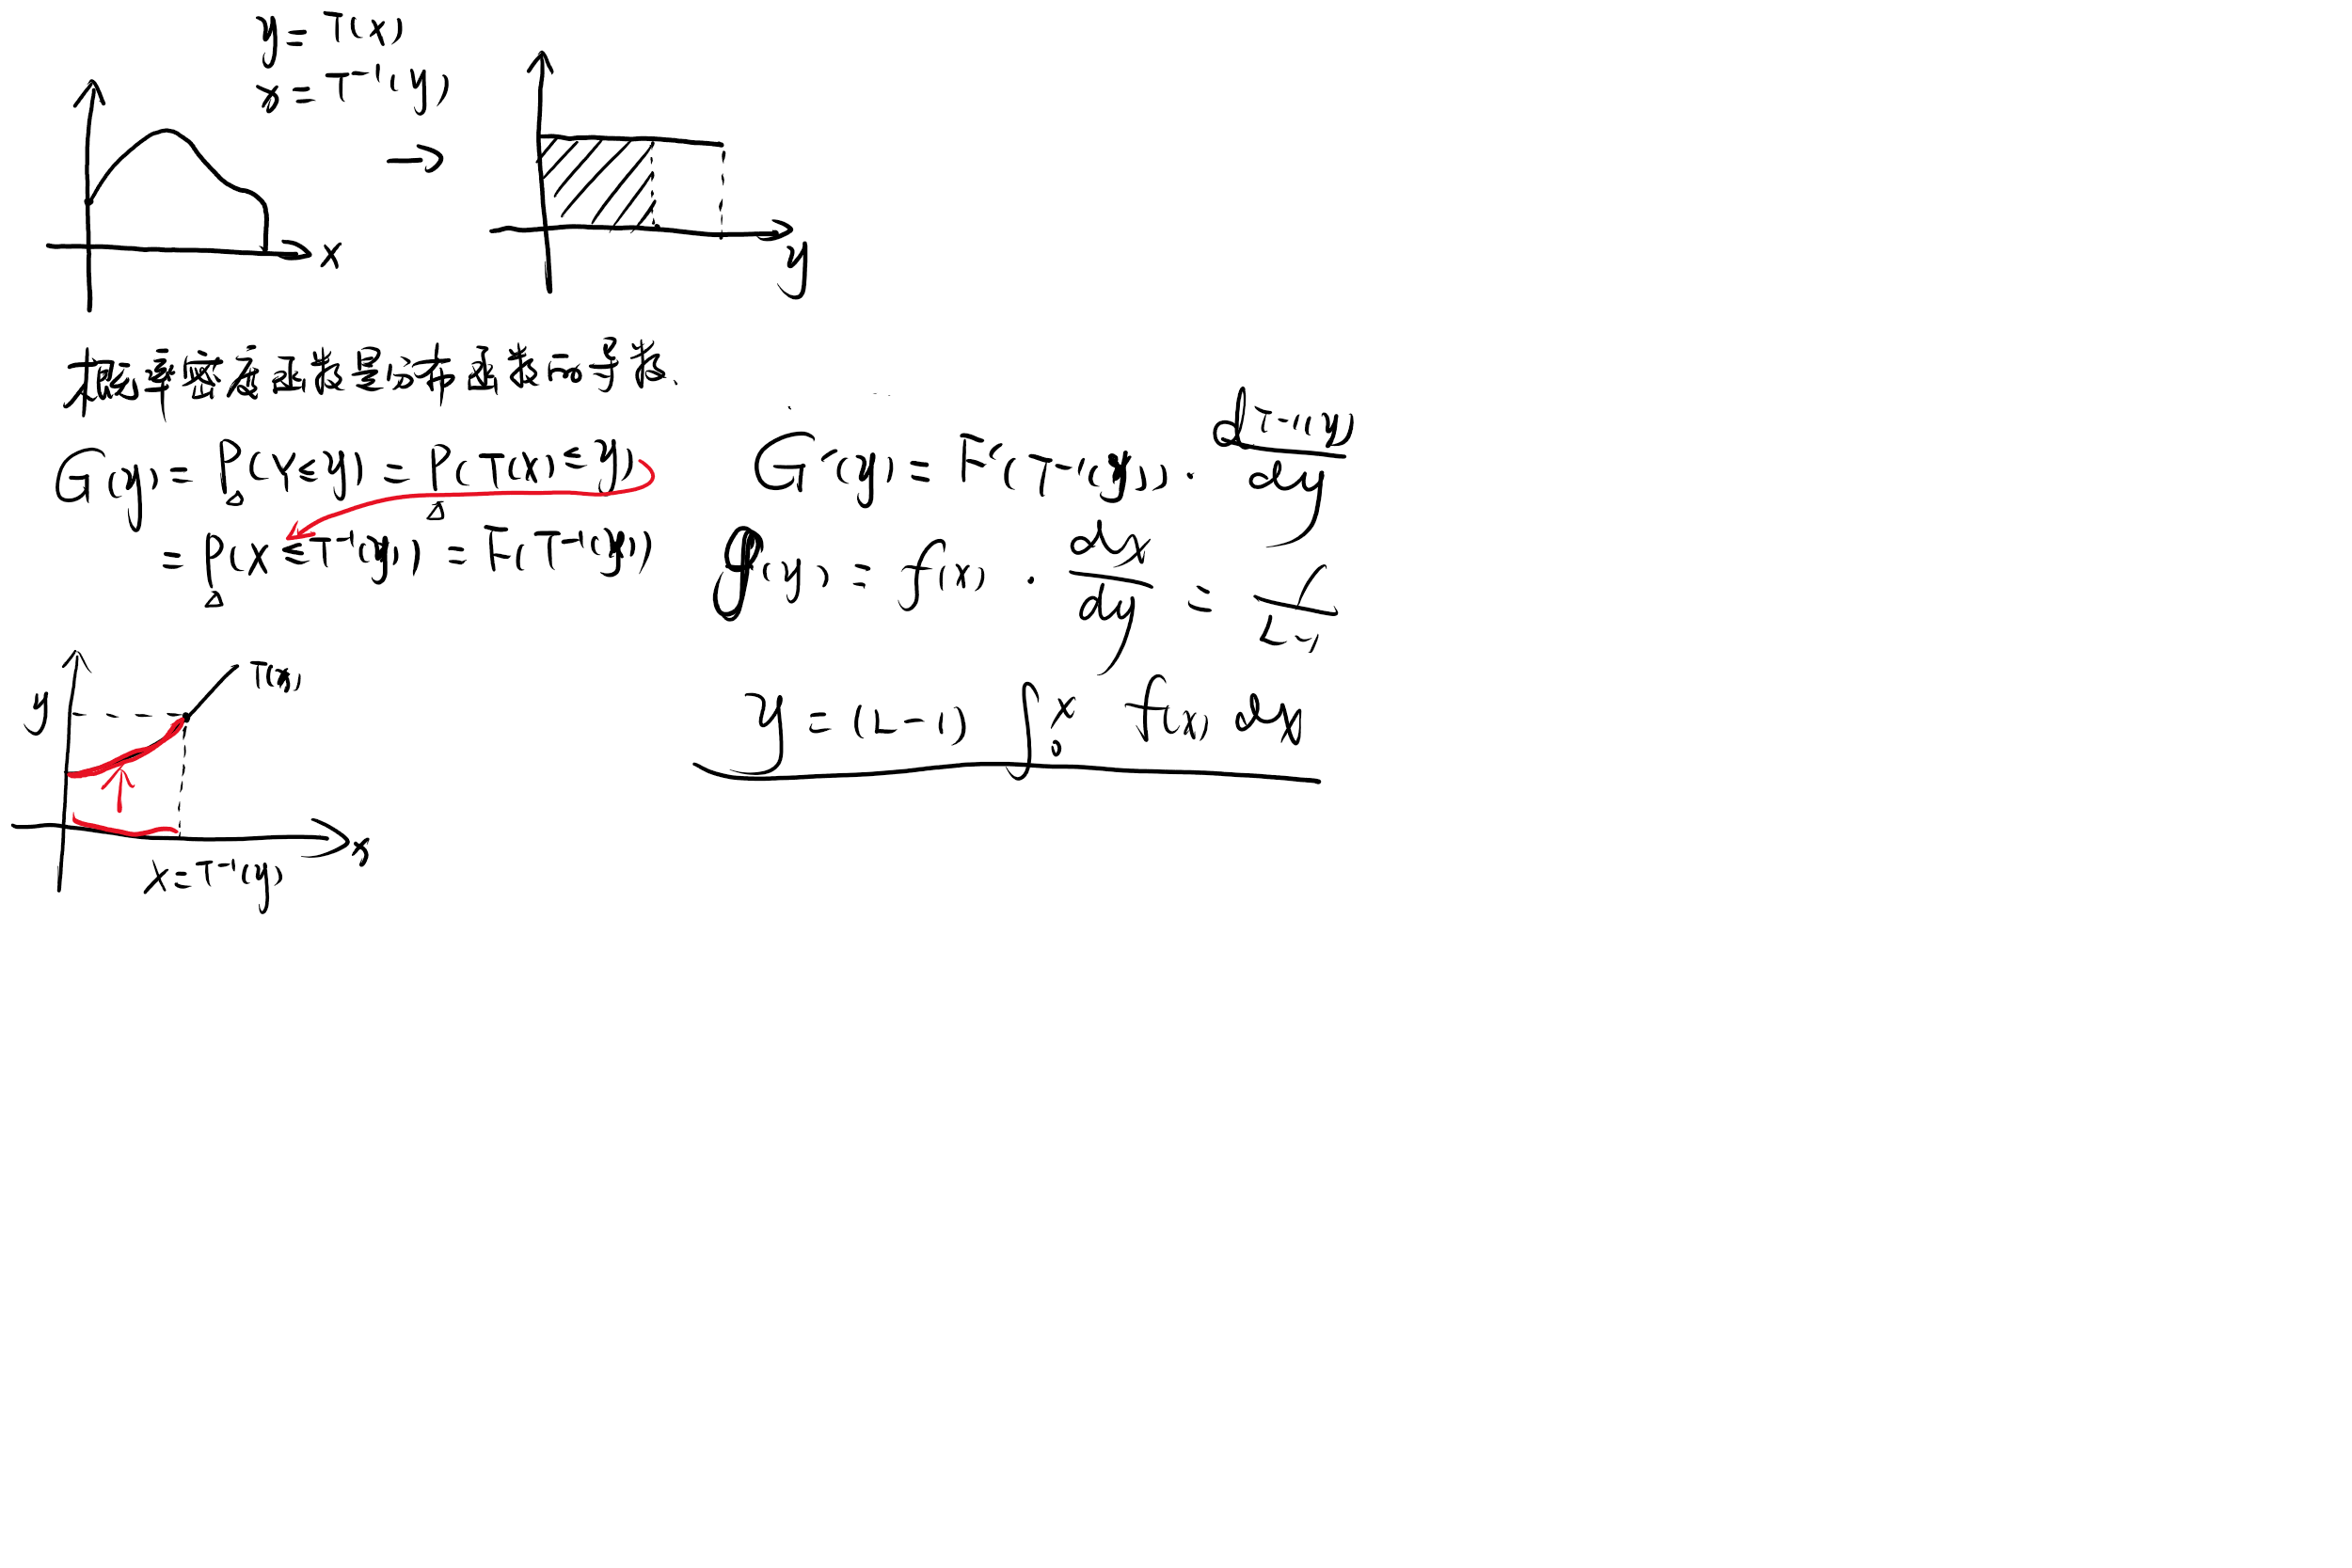 y = T(x)
x = T⁻¹(y)
→
x
y
概率密度函数是分布函数的导数.
G(y) = P(Y≤y) = P(T(x)≤y)
= P(x≤T⁻¹(y)) = F(T⁻¹(y))
G'(y) = F'(T⁻¹(y)) · dT⁻¹(y)/dy
g(y) = f(x) · dx/dy = 1/(L-1)
y = (L-1) ∫₀ˣ f(x) dx
T(x)
y
x
x = T⁻¹(y)